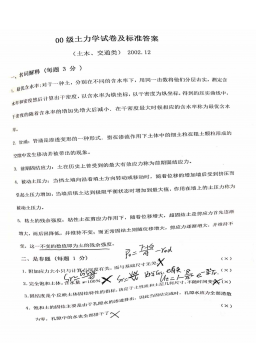 00级土力学试卷及标准答案
（土木、交通类） 2002.12
一、名词解释（每题 3 分）
1. 最优含水率：对于一种土，分别在不同的含水率下，用同一击数将他们分层击实，测定含
水率和密度然后计算出干密度，以含水率为横坐标，以干密度为纵坐标，得到的压实曲线中，
干密度的随着含水率的增加先增大后减小，在干密度最大时候相应的含水率称为最优含水
率。
2. 管涌：管涌是渗透变形的一种形式，指在渗流作用下土体中的细土粒在粗土颗粒形成的
空隙中发生移动并被带出的现象。
3. 前期固结应力：土在历史上曾受到的最大有效应力称为前期固结应力。
4. 被动土压力：当挡土墙向沿着填土方向转动或移动时，随着位移的增加墙后受到挤压而
引起土压力增加，当墙后填土达到极限平衡状态时增加到最大值，作用在墙上的土压力称为
被动土压力。
5. 粘土的残余强度：粘性土在剪应力作用下，随着位移增大，超固结土是剪应力首先逐渐
增大，而后回降低，并维持不变；而正常固结土则随位移增大，剪应力逐渐增大，并维持不
变，这一不变的数值即为土的残余强度。
二、是非题（每题 1 分）
1. 附加应力大小只与计算点深度有关，而与基础尺寸无关。 （×）
2. 完全饱和土体，含水量w=100% （×）
3. 固结度是个反映土体固结特性的指标，决定于土性和土层几何尺寸，不随时间变化。（×）
4. 饱和土的固结主要是由于孔隙水的渗透排出，因此当固结完成时，孔隙水应力全部消散
为零，孔隙中的水也全部排干了。 （×）